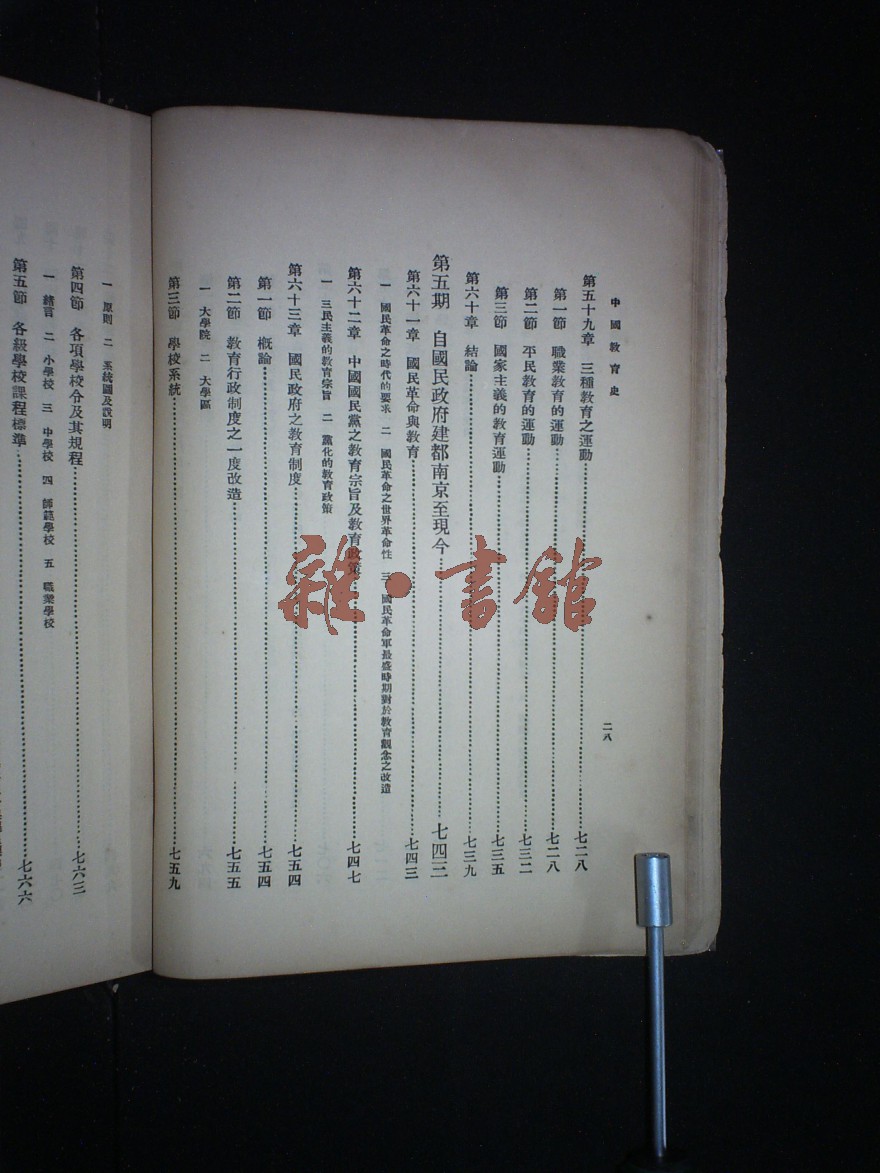 中國教育史
二八
第五十九章 三種教育之運動……七二八
第一節 職業教育的運動……七二八
第二節 平民教育的運動……七三二
第三節 國家主義的教育運動……七三五
第六十章 結論……七三九
第五期 自國民政府建都南京至現今……七四三
第六十一章 國民革命與教育……七四三
一 國民革命之時代的要求 二 國民革命之世界革命性 三 國民革命軍最盛時期對於教育觀念之改造
第六十二章 中國國民黨之教育宗旨及教育政策……七四七
一 三民主義的教育宗旨 二 黨化的教育政策
第六十三章 國民政府之教育制度……七五四
第一節 概論……七五四
第二節 教育行政制度之一度改造……七五五
一 大學院 二 大學區
第三節 學校系統……七五九
一 原則 二 系統圖及說明
第四節 各項學校令及其規程……七六三
一 緒言 二 小學校 三 中學校 四 師範學校 五 職業學校
第五節 各級學校課程標準……七六六
雜·書館